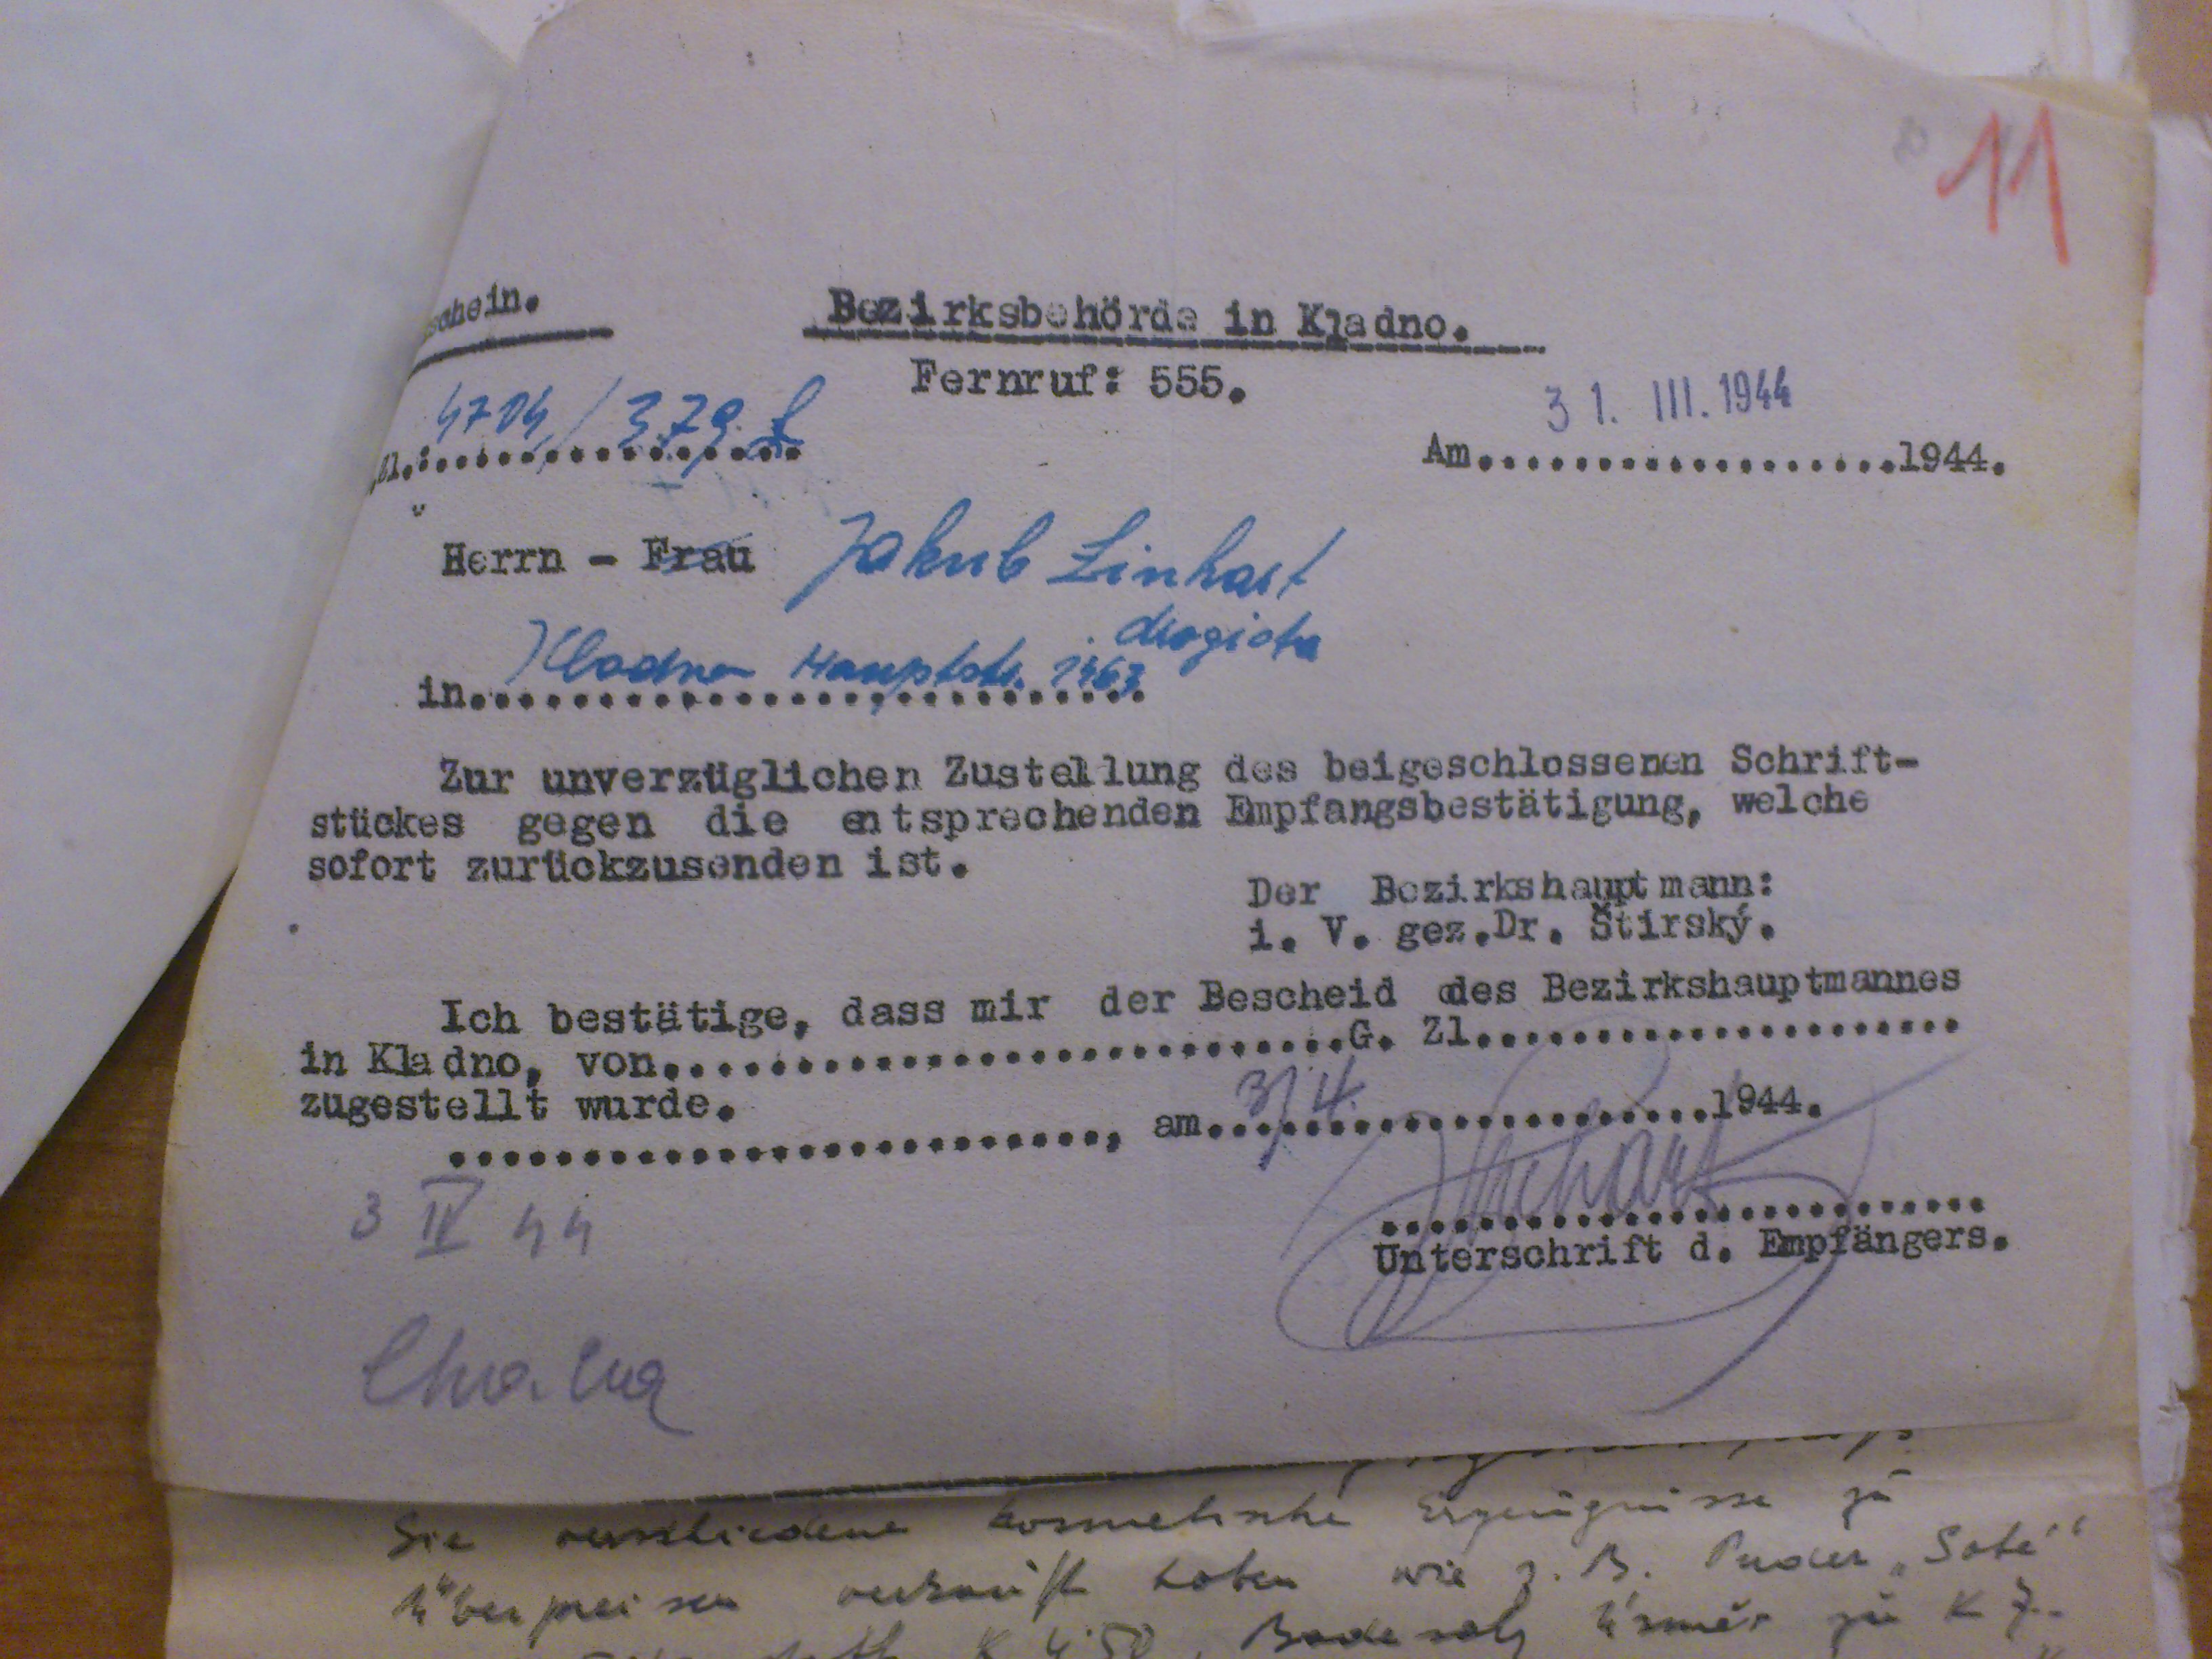 11
schein.
Bezirksbehörde in Kladno.
Fernruf: 555.
4704/379
31. III. 1944
Zl.:..................
Am..................1944.
Herrn - Frau Jakub Linhart
drogista
in Kladno Hauptstr. 1463
Zur unverzüglichen Zustellung des beigeschlossenen Schrift-
stückes gegen die entsprechenden Empfangsbestätigung, welche
sofort zurückzusenden ist.
Der Bezirkshauptmann:
i. V. gez.Dr. Štirský.
Ich bestätige, dass mir der Bescheid des Bezirkshauptmannes
in Kladno, von..........................G. Zl...................
zugestellt wurde.
........................., am 3/4...................1944.
Linhart
3 IV 44
Unterschrift d. Empfängers.
Sie verschiedene kosmetische Erzeugnisse zu
Überpreisen verkauft haben wie z. B. Puder „Saté"
K 4·50, Badesalz zu K 7.-